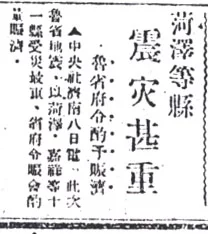 菏澤等縣
震灾甚重
魯省府令酌予賑濟
▲中央社濟南八日電、此次
魯省地震、以菏澤、嘉祥等十
一縣受灾最重、省府令賑會酌
量賑濟、